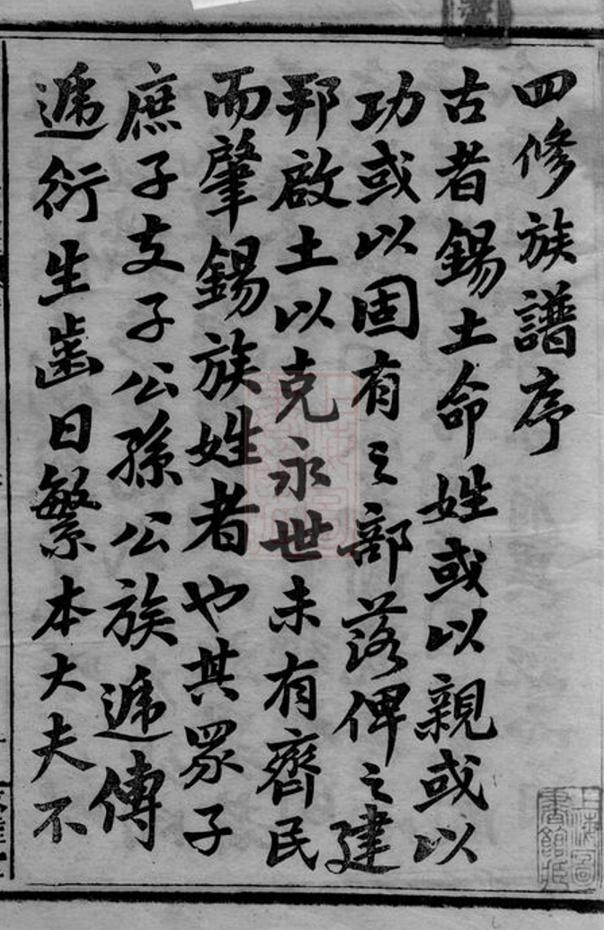 四修族譜序
古者錫土命姓或以親或以
功或以固有之部落俾之建
邦啟土以克永世未有齊民
而肇錫族姓者也其眾子
庶子支子公孫公族遞傳
遞衍生齒日繁本大夫不